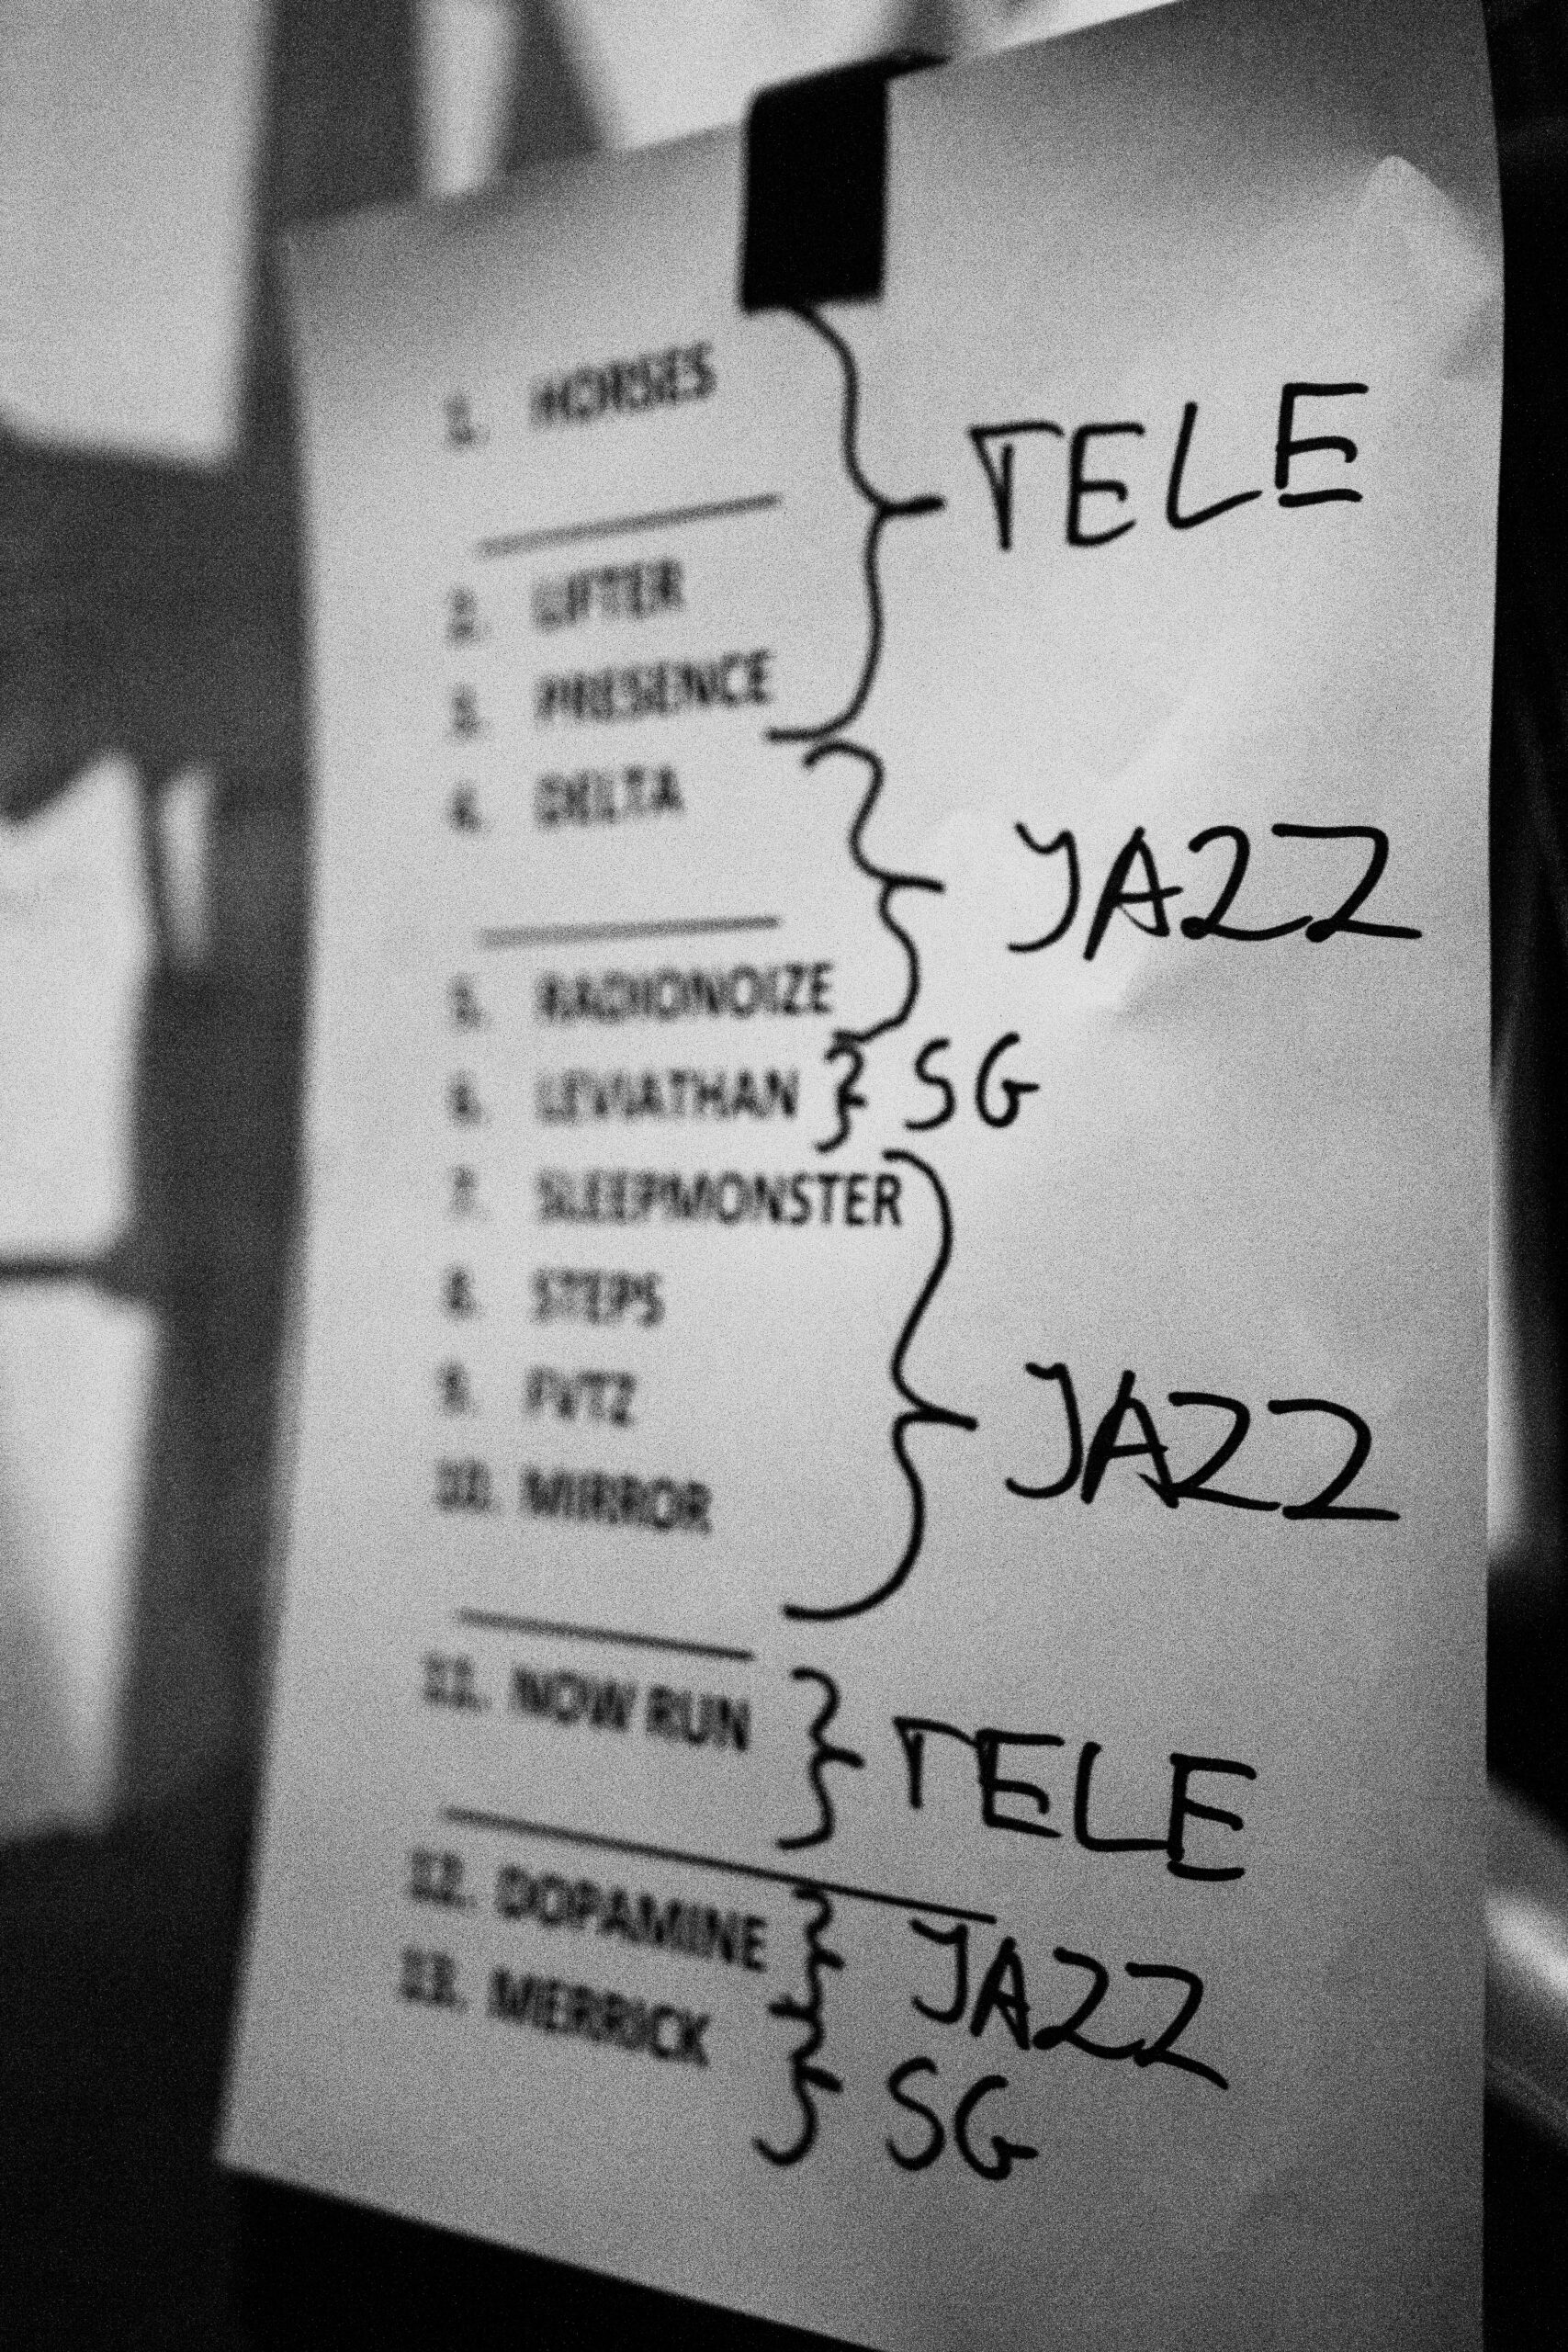 1. HORSES
TELE
2. LIFTER
3. PRESENCE
4. DELTA
JAZZ
5. RADIONOIZE
6. LEVIATHAN } SG
7. SLEEPMONSTER
8. STEPS
9. FVTZ
JAZZ
10. MIRROR
11. NOW RUN } TELE
12. DOPAMINE } JAZZ
13. MERRICK } SG